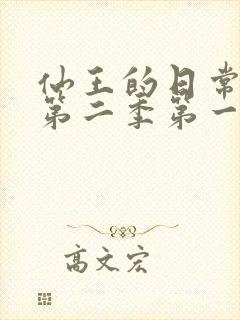 仙王的日常
第二季第一
高文宏